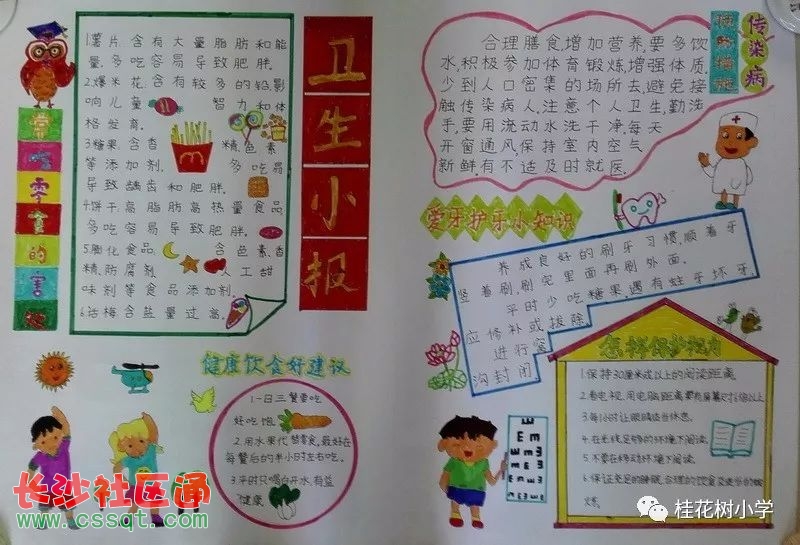 卫生小报
常吃零食的害处
1.薯片含有大量脂肪和能
量,多吃容易导致肥胖.
2.爆米花:含有较多的铅影
响儿童 智力和体
格发育.
3.糖果:含香 精色素
等添加剂. 多吃易
导致龋齿和肥胖.
4.饼干:高脂肪高热量食品
多吃容易导致肥胖.
5.膨化食品. 含色素,香
精,防腐剂. 人工甜
味剂等食品添加剂.
6.话梅含盐量过高.
健康饮食好建议
1.一日三餐要吃
好吃饱
2.用水果代替零食,最好在
每餐后的半小时左右吃.
3.平时只喝白开水,有益
健康
传染病
预防措施
合理膳食,增加营养,要多饮
水,积极参加体育锻炼,增强体质,
少到人口密集的场所去,避免接
触传染病人,注意个人卫生,勤洗
手,要用流动水洗干净,每天
开窗通风保持室内空气
新鲜有不适及时就医.
爱牙护牙小知识
养成良好的刷牙习惯,顺着牙
竖着刷,刷完里面再刷外面.
平时少吃糖果,遇有蛀牙坏牙,
应修补或拔除.
进行窝
沟封闭
怎样保护视力
1.保持30厘米或以上的阅读距离.
2.看电视,用电脑距离要有屏幕尺寸6倍以上
3.每1小时让眼睛适当休息.
4.在光线足够的环境下阅读.
5.不要在移动环境下阅读.
6.保证充足的睡眠,合理的饮食及适当的锻
炼.
长沙社区通
www.cssqt.com
桂花树小学